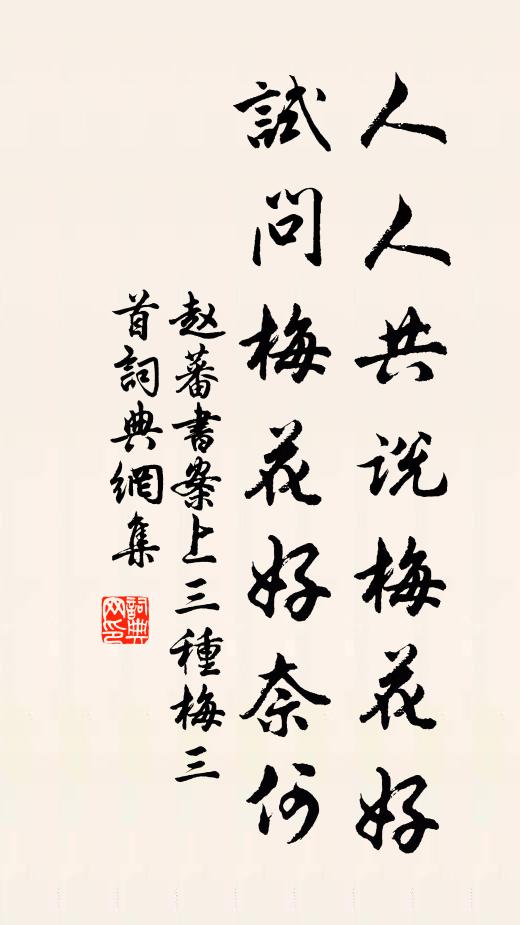 人人共说梅花好
試問梅花好奈何
赵蕃書案上三種梅三
首詞典網集
詞典
网印